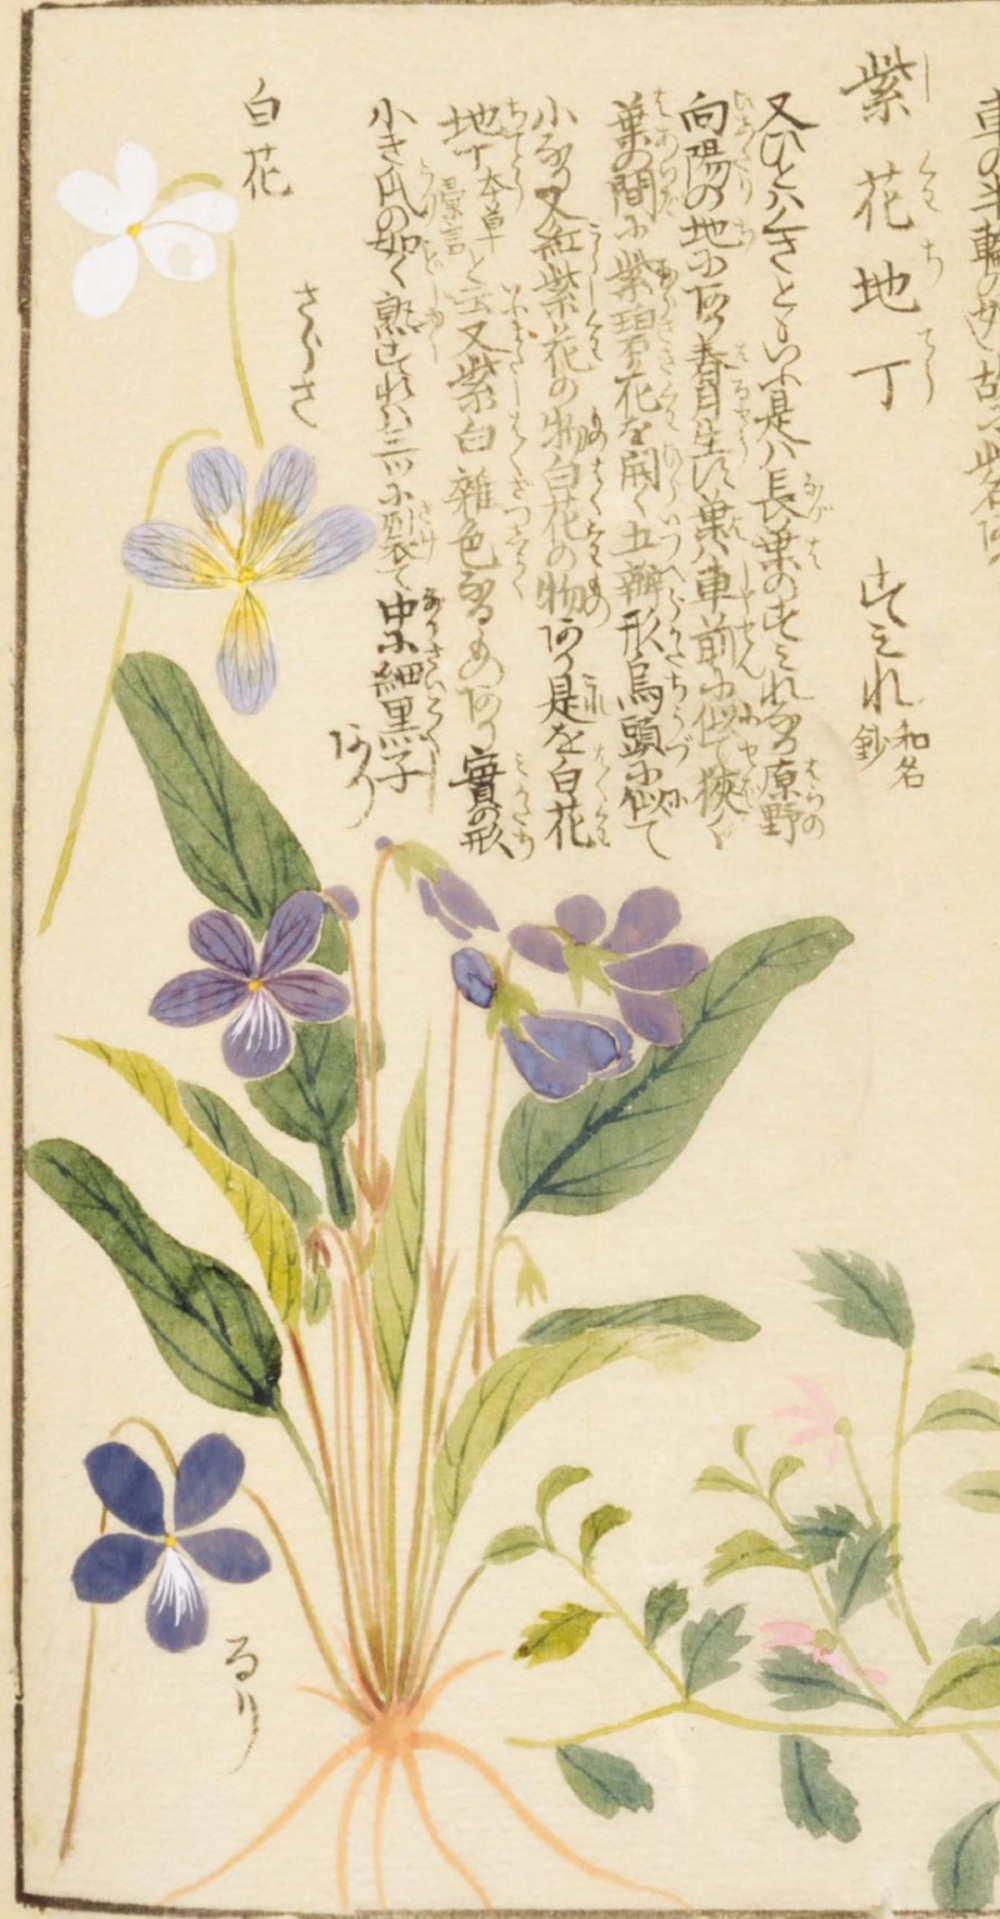 車の半輪の如し故に此名あ
紫花地丁 すみれ 和名鈔
又ひとハくさともいふ是ハ長葉のすみれなり原野
向陽の地にあり春月生ず葉ハ車前に似て狹く
葉の間に紫碧花を開く五瓣形烏頭に似て
小なり又紅紫花の物白花の物あり是を白花
地丁 本草彙言 と云又紫白雜色なるものあり實の形
小き瓜の如く熟すれハ三ツに裂て中に細黒子
あり
白花
さらさ
るり